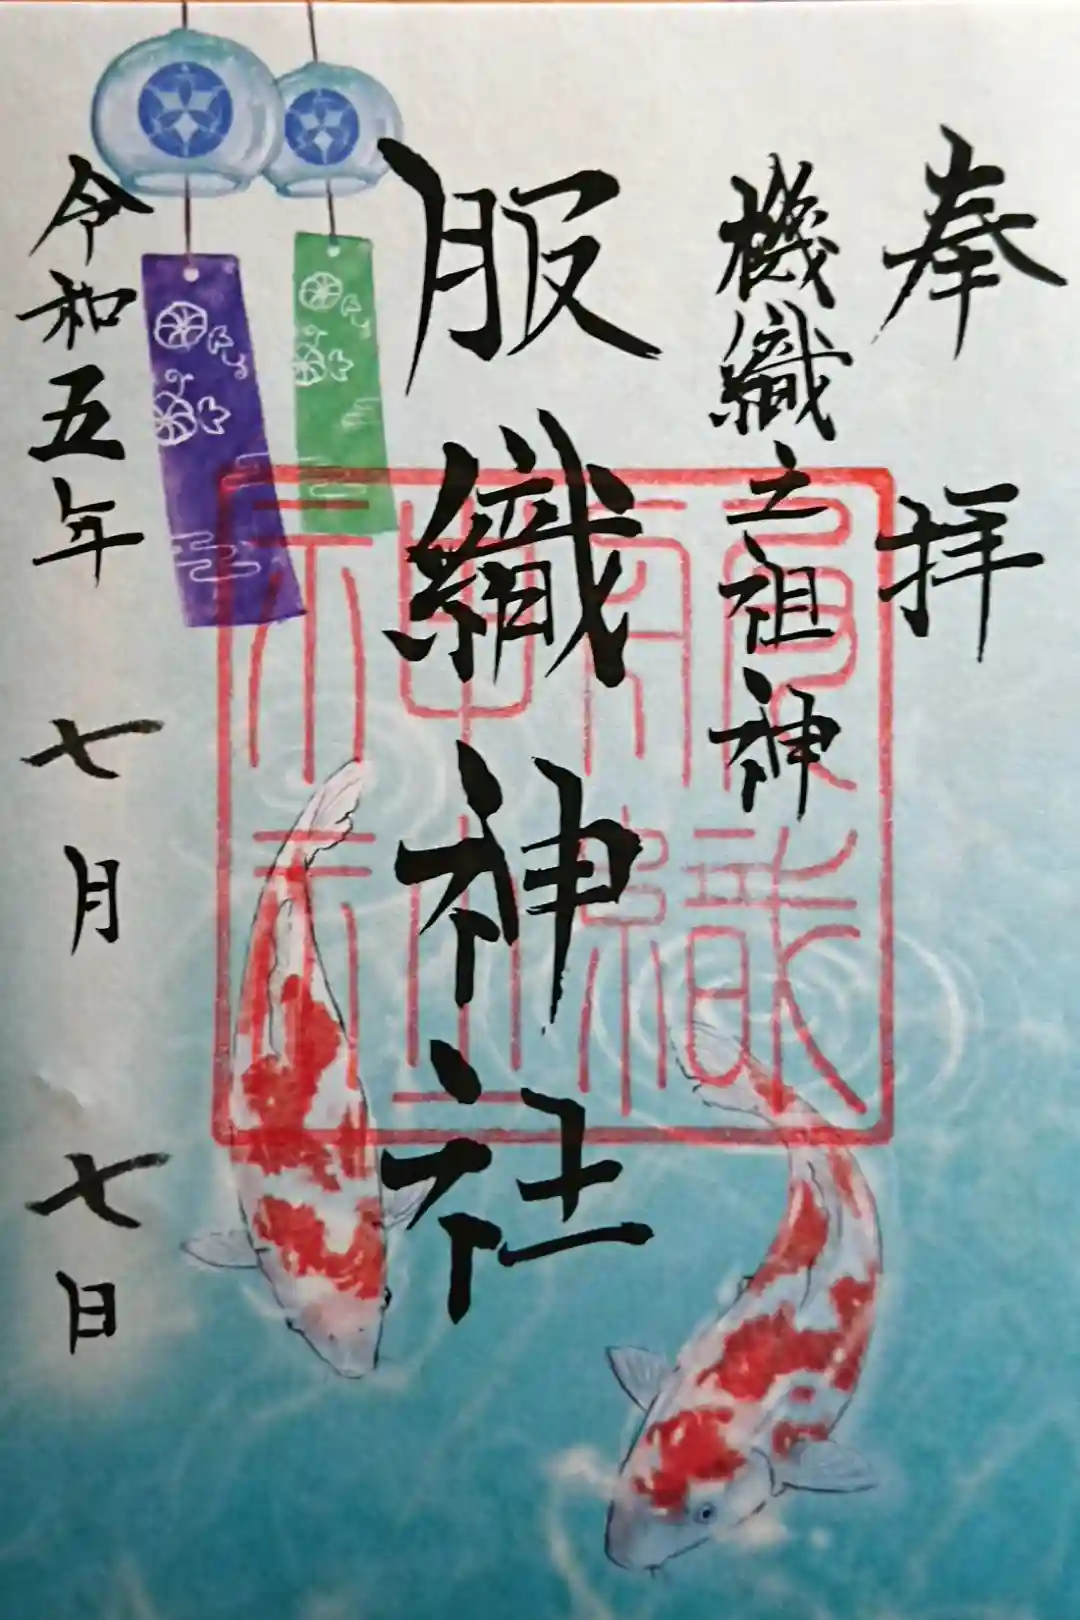 奉拝
機織之祖神
服織神社
令和五年七月七日